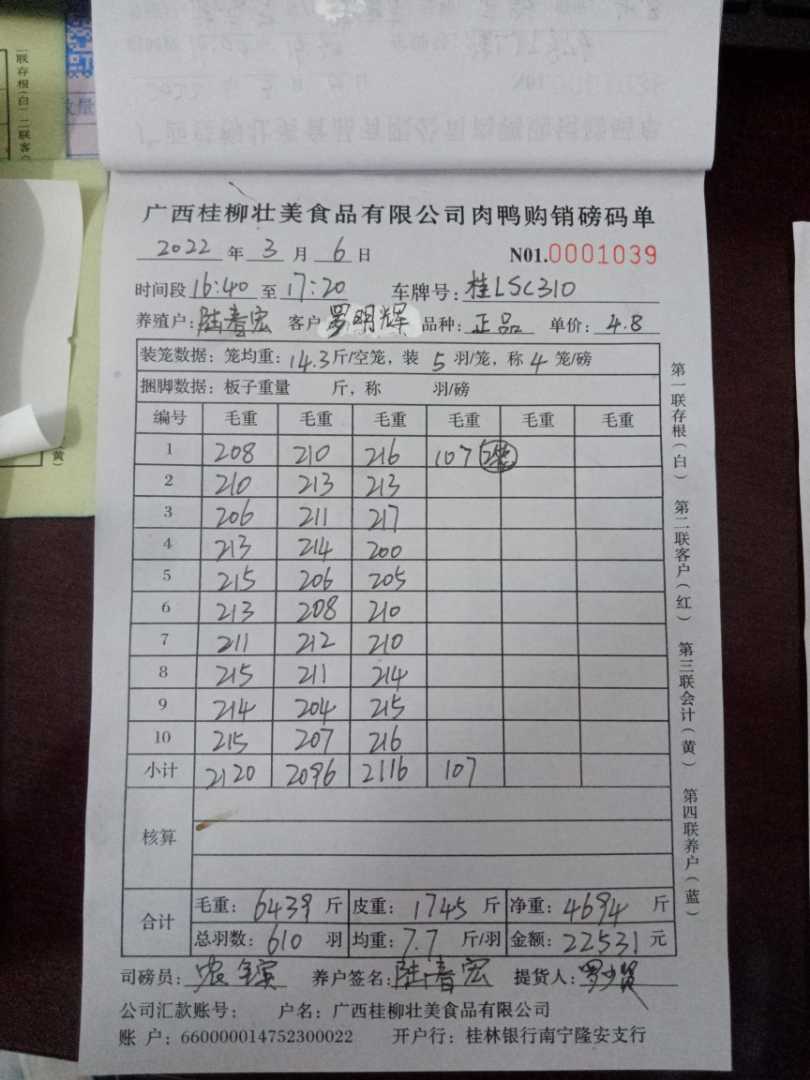 广西桂柳壮美食品有限公司肉鸭购销磅码单
2022 年 3 月 6 日 N01.0001039
时间段 16:40 至 17:20 车牌号: 桂LSC310
养殖户: 陆春宏 客户 罗明辉 品种: 正品 单价: 4.8
装笼数据: 笼均重: 14.3 斤/空笼, 装 5 羽/笼, 称 4 笼/磅
捆脚数据: 板子重量 斤, 称 羽/磅
编号 毛重 毛重 毛重 毛重 毛重 毛重
1 208 210 216 107
2 210 213 213
3 206 211 217
4 213 214 200
5 215 206 205
6 213 208 210
7 211 212 210
8 215 211 214
9 214 204 215
10 215 207 216
小计 2120 2096 2116 107
核算
合计
毛重: 6439 斤 皮重: 1745 斤 净重: 4694 斤
总羽数: 610 羽 均重: 7.7 斤/羽 金额: 22531 元
司磅员: 养户签名: 陆春宏 提货人:
公司汇款账号: 户名: 广西桂柳壮美食品有限公司
账 户: 660000014752300022 开户行: 桂林银行南宁隆安支行
第一联存根(白) 第二联客户(红) 第三联会计(黄) 第四联养户(蓝)